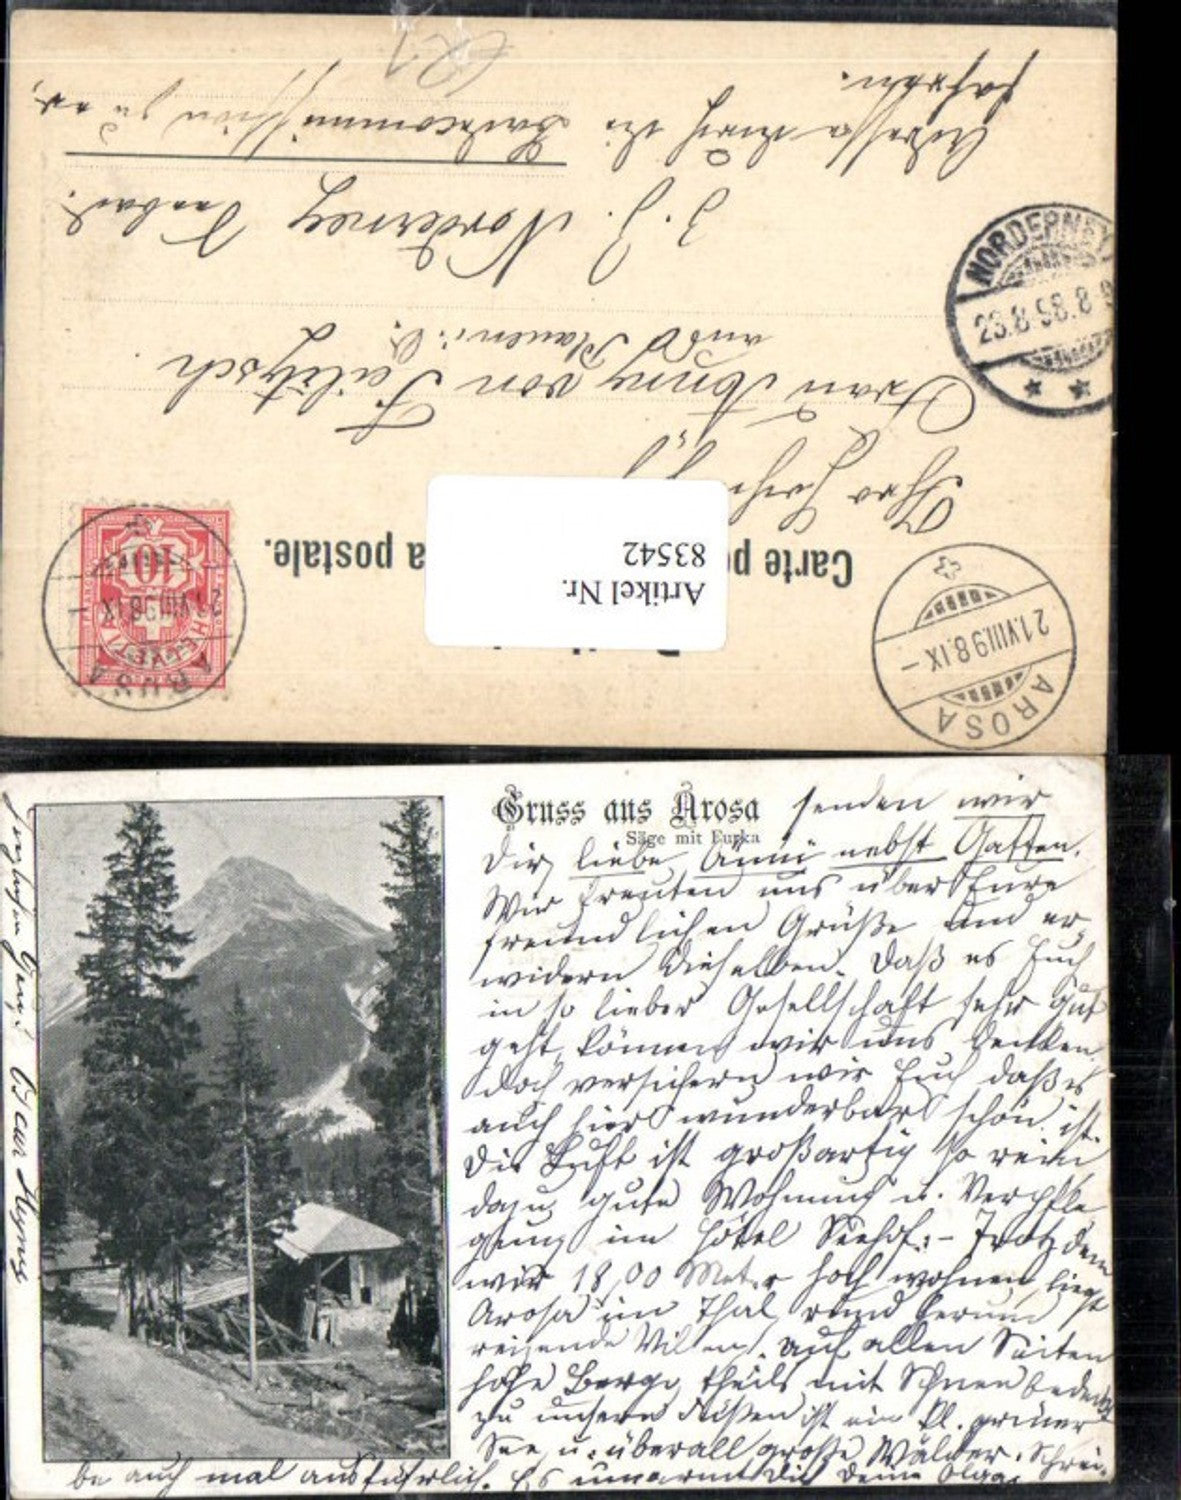 Carte po
a postale.
Artikel Nr.
83542
AROSA
21.VIII.98.IX
AROSA
21.VIII.98.IX
HELVETIA
10
NORDERNEY
23.8.98.8-9
Frau Anny von Feilitzsch
aus Plauen i. V.
z. Z. Norderney Seebad.
Adresse durch die
Badecommission zu er,
fahren.
Gruss aus Arosa
Säge mit Furka
senden wir
Dir, liebe Änni nebst Gatten.
Wir freuten uns über Eure
freundlichen Grüße und er,
widern dieselben. Daß es Euch
in so lieber Gesellschaft sehr gut
geht, können wir uns denken,
doch versichern wir Euch daß es
auch hier wunderbar schön ist.
Die Luft ist großartig so rein
dazu gute Wohnung u. Verpfle
gung im Hôtel Seehof. - Trotzdem
wir 18,00 Meter hoch wohnen, liegt
Arosa im Thal, rund herum
reizende Villen, auf allen Seiten
hohe Berge, theils mit Schnee bedeckt,
zu unsern Füßen ist ein kl. grüner
See, u. überall große Wälder. Schrei-
be auch mal ausführlich. Es umarmt Dich Deine Olga